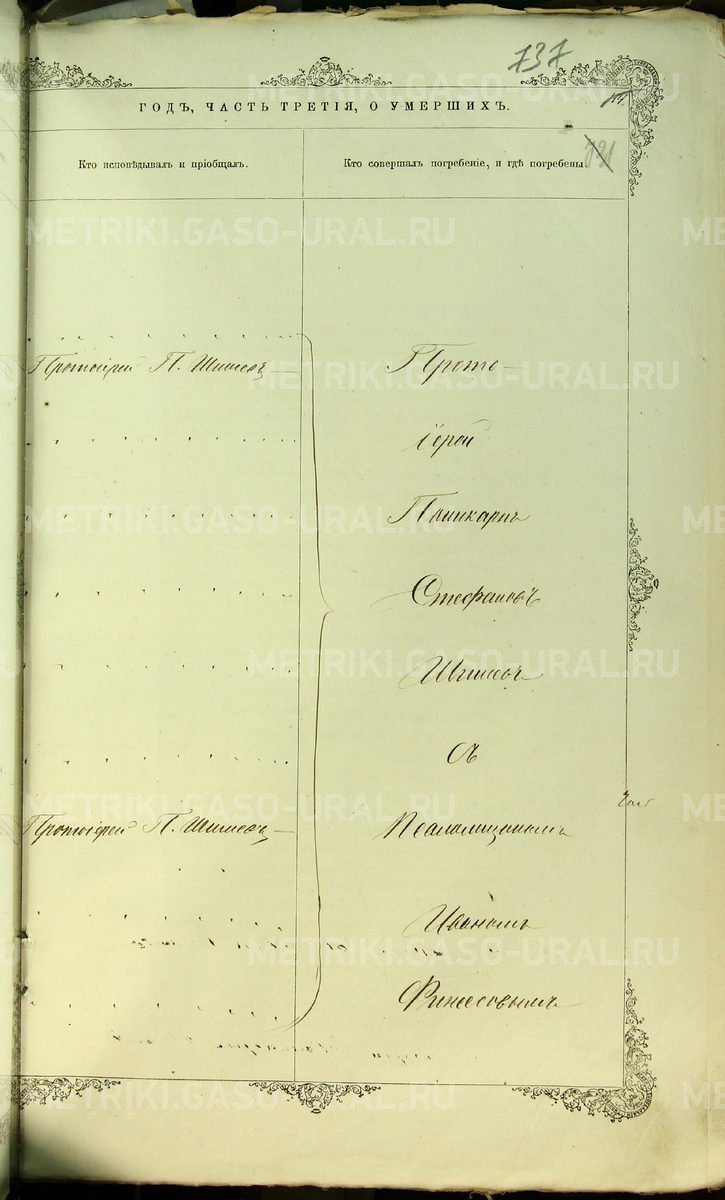 737
ГОДЪ, ЧАСТЬ ТРЕТІЯ, О УМЕРШИХЪ.
Кто исповѣдывалъ и пріобщалъ.
Кто совершалъ погребеніе, и гдѣ погребены.
METRIKI.GASO-URAL.RU
Протоіерей П. Шишевъ
Прото-
іерей
Поликарпъ
Стефановъ
Шишевъ
съ
Протоіерей П. Шишевъ
Псаломщикомъ
Иваномъ
Финесовымъ